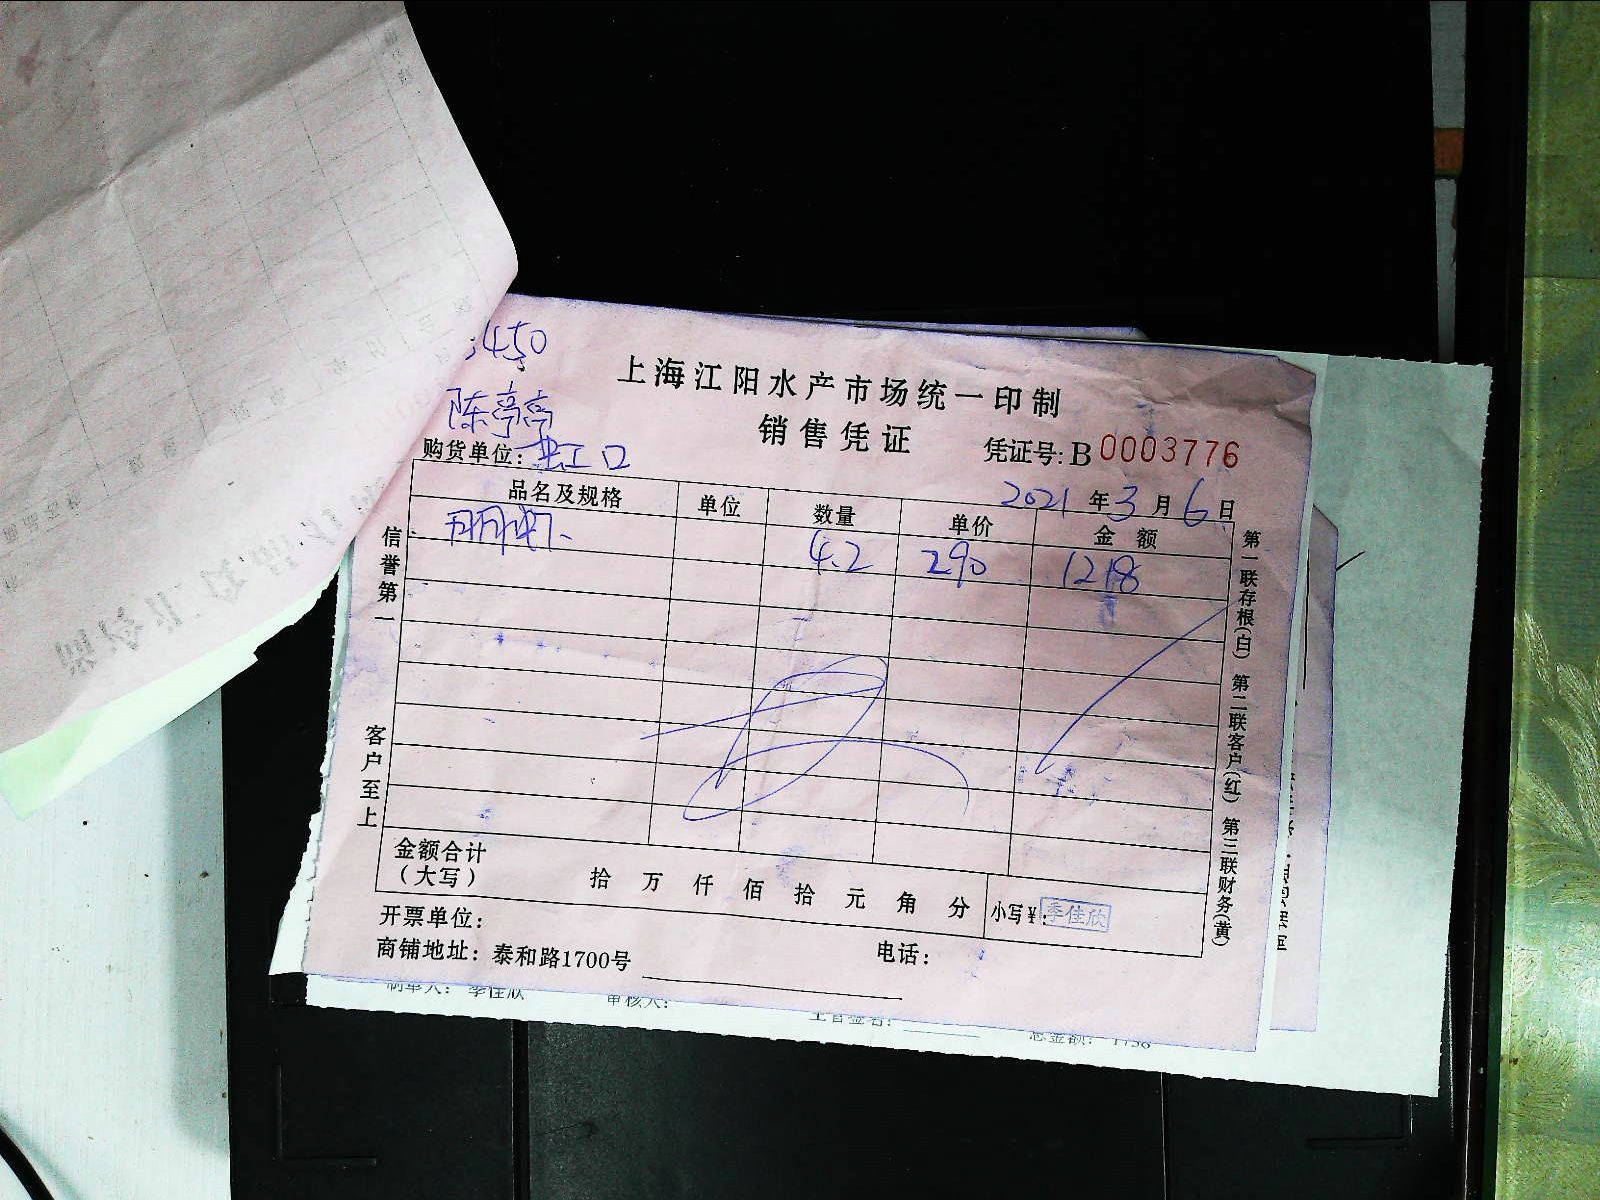 450
上海江阳水产市场统一印制
销售凭证
凭证号:B 0003776
陈亭亭
购货单位: 虹口
2021 年 3 月 6 日
品名及规格 单位 数量 单价 金额
明虾 4.2 290 1218
信誉第一
客户至上
第一联存根(白) 第二联客户(红) 第三联财务(黄)
金额合计
(大写) 拾 万 仟 佰 拾 元 角 分 小写¥: 季佳欣
开票单位:
商铺地址: 泰和路1700号 电话:
制单人: 季佳欣 审核人: 主管签名: 总金额: